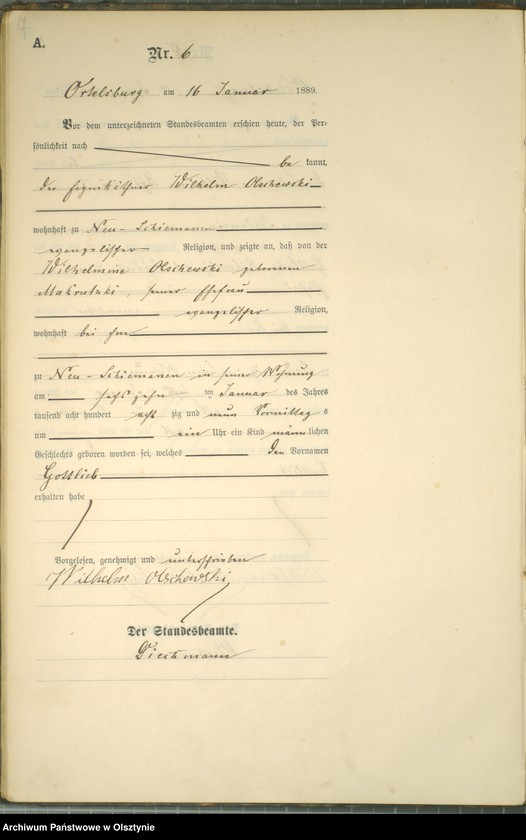 A.
Nr. 6
Ortelsburg am 16 Januar 1889.
Vor dem unterzeichneten Standesbeamten erschien heute, der Per-
sönlichkeit nach
be kannt,
der Eigenkäthner Wilhelm Olschewski
wohnhaft zu Neu-Schiemanen
evangelischer Religion, und zeigte an, daß von der
Wilhelmine Olschewski geborenen
seiner Ehefrau
evangelischer Religion,
wohnhaft bei ihm
zu Neu-Schiemanen in seiner Wohnung
am sechszehn ten Januar des Jahres
tausend acht hundert acht zig und neun Vormittag s
um ein Uhr ein Kind männlichen
Geschlechts geboren worden sei, welches den Vornamen
Gottlieb
erhalten habe
Vorgelesen, genehmigt und unterschrieben
Wilhelm Olschewski
Der Standesbeamte.
Archiwum Państwowe w Olsztynie